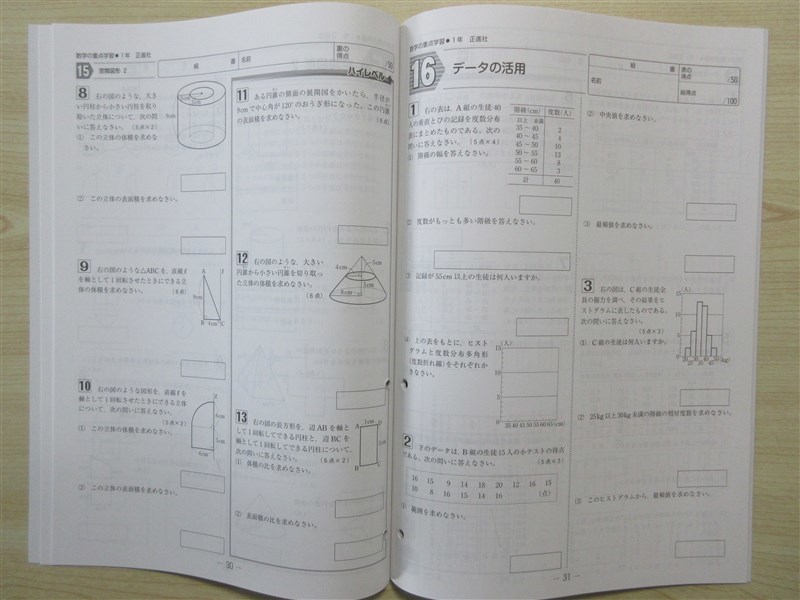 数学の重点学習●1年 正進社
15 空間図形 2
組 番 名前
表の得点
/50
8 右の図のような,大き
い円柱から小さい円柱を取り
除いた立体について,次の問
いに答えなさい。(5点×2)
① この立体の体積を求めな
さい。
② この立体の表面積を求めなさい。
9 右の図のような△ABCを,直線ℓ
を軸として1回転させたときにできる立
体の体積を求めなさい。(6点)
A
ℓ
9cm
B 4cm C
10 右の図のような図形を,直線ℓを
軸として1回転させたときにできる立体
について,次の問いに答えなさい。
(5点×2)
① この立体の体積を求めなさい。
6cm
6cm
② この立体の表面積を求めなさい。
ハイレベル
11 ある円錐の側面の展開図をかいたら,半径が
9cmで中心角が120°のおうぎ形になった。この円錐
の表面積を求めなさい。(6点)
12 右の図のような,大きい
円錐から小さい円錐を切り取っ
た立体の体積を求めなさい。
(6点)
4cm
5cm
6cm
13 右の図の長方形を,辺ABを軸と
して1回転してできる円柱と,辺BCを
軸として1回転してできる円柱について,
次の問いに答えなさい。(6点×2)
① 体積の比を求めなさい。
A
D
B
C
② 表面積の比を求めなさい。
― 30 ―
数学の重点学習●1年 正進社
16 データの活用
組 番
名前
表の得点
/50
総得点
/100
1 右の表は,A組の生徒40
人の垂直とびの記録を度数分布
表にまとめたものである。次の
問いに答えなさい。(5点×4)
① 階級の幅を答えなさい。
階級(cm) 度数(人)
以上 未満
35 ~ 40 2
40 ~ 45 4
45 ~ 50 10
50 ~ 55 13
55 ~ 60 8
60 ~ 65 3
計 40
② 度数がもっとも多い階級を答えなさい。
③ 記録が55cm以上の生徒は何人いますか。
④ 上の表をもとに,ヒスト
グラムと度数分布多角形
(度数折れ線)をそれぞれか
きなさい。
(人)
15
10
5
0
35 40 45 50 55 60 65 (cm)
2 下のデータは,B組の生徒15人の小テストの得点
である。次の問いに答えなさい。(5点×3)
16 15 9 14 18 20 12 16 15
10 8 16 15 14 16 (点)
① 範囲を求めなさい。
② 中央値を求めなさい。
③ 最頻値を求めなさい。
3 右の図は,C組の生徒全
員の握力を調べ,その結果をヒ
ストグラムに表したものである。
次の問いに答えなさい。
(5点×3)
① C組の生徒は何人いますか。
(人)
15
10
5
0
20 30 40 (kg)
② 25kg以上30kg未満の階級の相対度数を求めなさい。
③ このヒストグラムから,最頻値を求めなさい。
― 31 ―